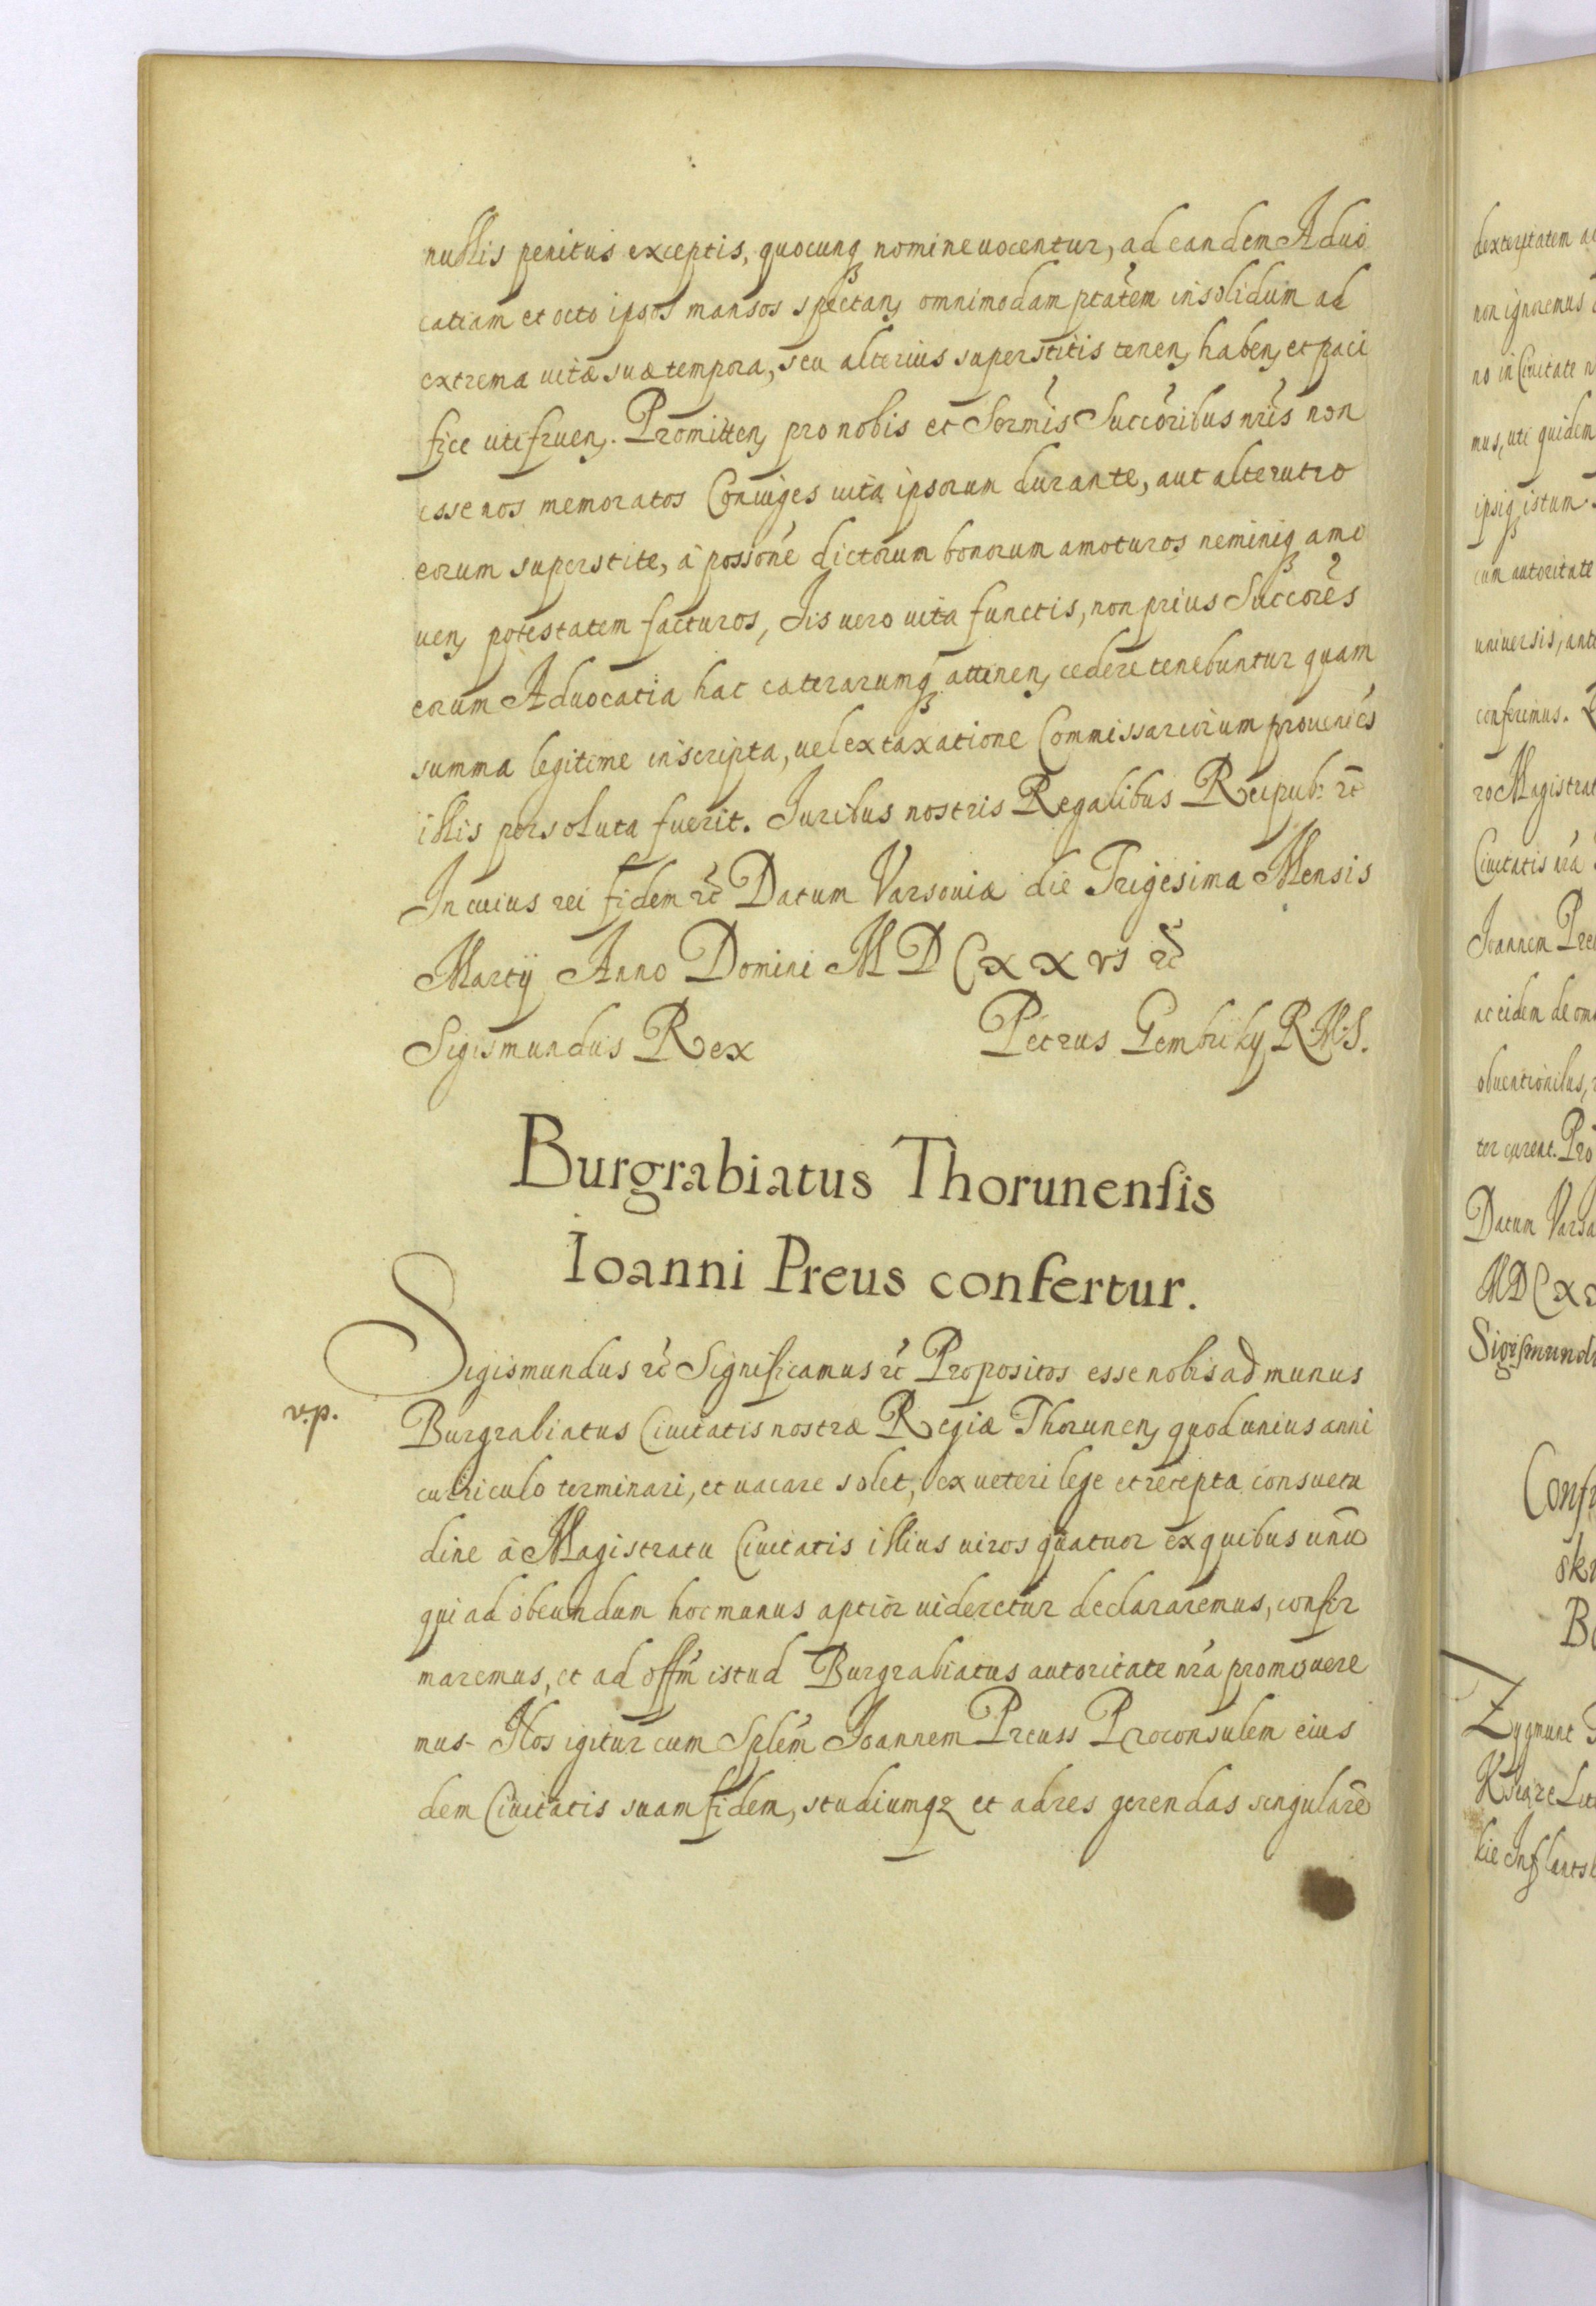 nullis penitus exceptis, quocunq nomine uocentur, ad eandem Aduo
catiam et octo ipsos mansos spectan, omnimodam ptátem insolidum ad
extrema uitæ suæ tempora, seu alterius superstitis tenen, haben, et paci
fice uti fruen. Promitten, pro nobis et Sermis Succoribus nris non
esse nos memoratos Coniuges uita ipsorum durante, aut alterutro
eorum superstite, à possione dictorum bonorum amoturos neminiq amo
uen, potestatem facturos, Iis uero uita functis, non prius Succores
eorum Aduocatia hac cæterarumq attinen, cedere tenebuntur quam
summa legitime inscripta, uel ex taxatione Commissariorum proueniés
illis persoluta fuerit. Iuribus nostris Regalibus Reipub: etc
In cuius rei fidem etc Datum Varsouiæ die Trigesima Mensis
Martij Anno Domini M D C x x vi etc
Sigismundus Rex Petrus Gembicky R.M.S.
Burgrabiatus Thorunensis
Ioanni Preus confertur.
Sigismundus etc Significamus etc Propositos esse nobis ad munus
v.p.
Burgrabiatus Ciuitatis nostræ Regiæ Thorunen, quod unius anni
curriculo terminari, et uacare solet, ex ueteri lege et recepta consuetu
dine à Magistratu Ciuitatis illius uiros quatuor ex quibus unū
qui ad obeundum hoc munus aptior uideretur declararemus, confir
maremus, et ad offm istud Burgrabiatus autoritate nra promouere
mus. Nos igitur cum Splem Ioannem Preuss Proconsulem eius
dem Ciuitatis suam fidem, studiumqz et ad res gerendas singularē
dexteritatem
non ignoremus
no in Ciuitate
mus, uti quidem
ipsiq istum
cum autoritate
uniuersis,
conferimus.
Civitatis nra
Ioannem
ac eidem de
obuentionibus,
ter curent.
Datum
MDC
Zygmunt